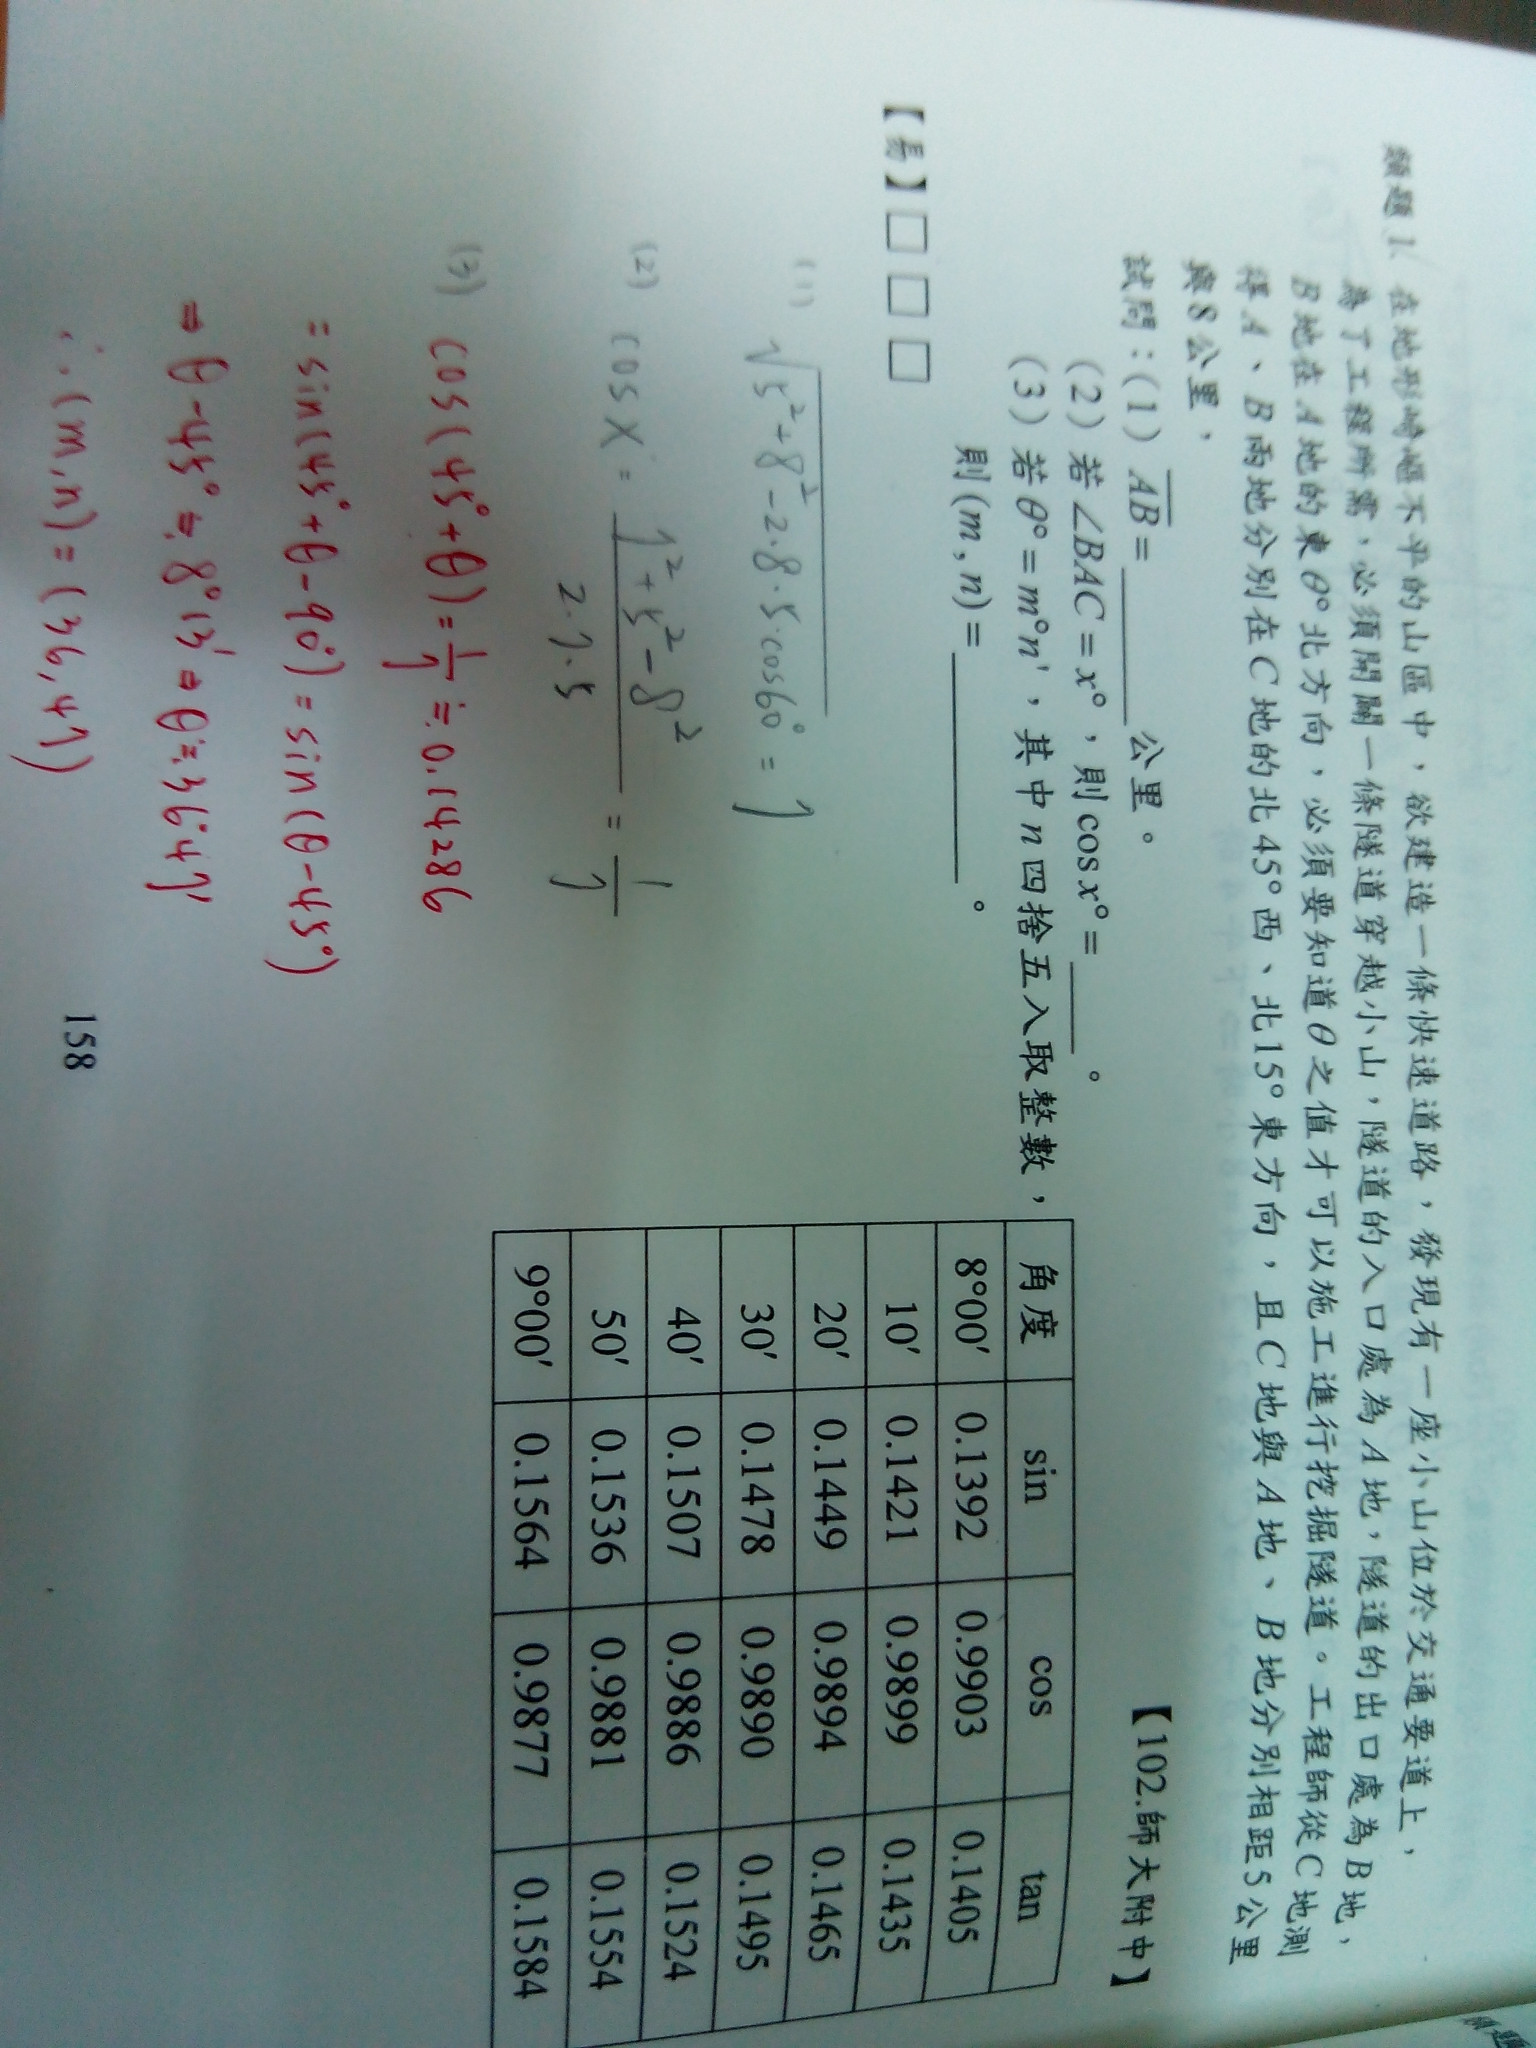 類題1. 在地形崎嶇不平的山區中，欲建造一條快速道路，發現有一座小山位於交通要道上，
為了工程所需，必須開闢一條隧道穿越小山，隧道的入口處為A地，隧道的出口處為B地，
B地在A地的東θ°北方向，必須要知道θ之值才可以施工進行挖掘隧道。工程師從C地測
得A、B兩地分別在C地的北45°西、北15°東方向，且C地與A地、B地分別相距5公里
與8公里，
試問：(1) AB = ______ 公里。 【102.師大附中】
(2) 若∠BAC = x°，則cos x° = ______。
(3) 若θ° = m°n'，其中n四捨五入取整數，
則(m, n) = ______。
【易】□□□
角度 sin cos tan
8°00' 0.1392 0.9903 0.1405
10' 0.1421 0.9899 0.1435
20' 0.1449 0.9894 0.1465
30' 0.1478 0.9890 0.1495
40' 0.1507 0.9886 0.1524
50' 0.1536 0.9881 0.1554
9°00' 0.1564 0.9877 0.1584
(1) √5²+8²-2·8·5·cos60° = 7
(2) cos x = 7²+5²-8² / 2·7·5 = 1/7
(3) cos(45°+θ) = 1/7 ≒ 0.14286
= sin(45°+θ-90°) = sin(θ-45°)
⇒ θ-45° ≒ 8°13' ⇒ θ ≒ 36°47'
∴ (m,n) = (36,47)
158